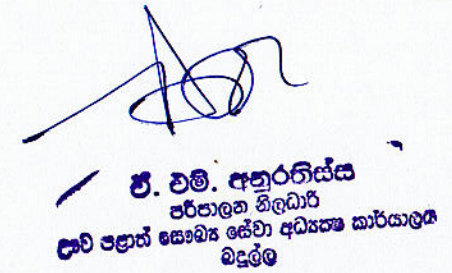 ඒ. එම්. අනුරතිස්ස
පරිපාලන නිලධාරී
ඌව පළාත් සෞඛ්‍ය සේවා අධ්‍යක්ෂ කාර්යාලය
බදුල්ල